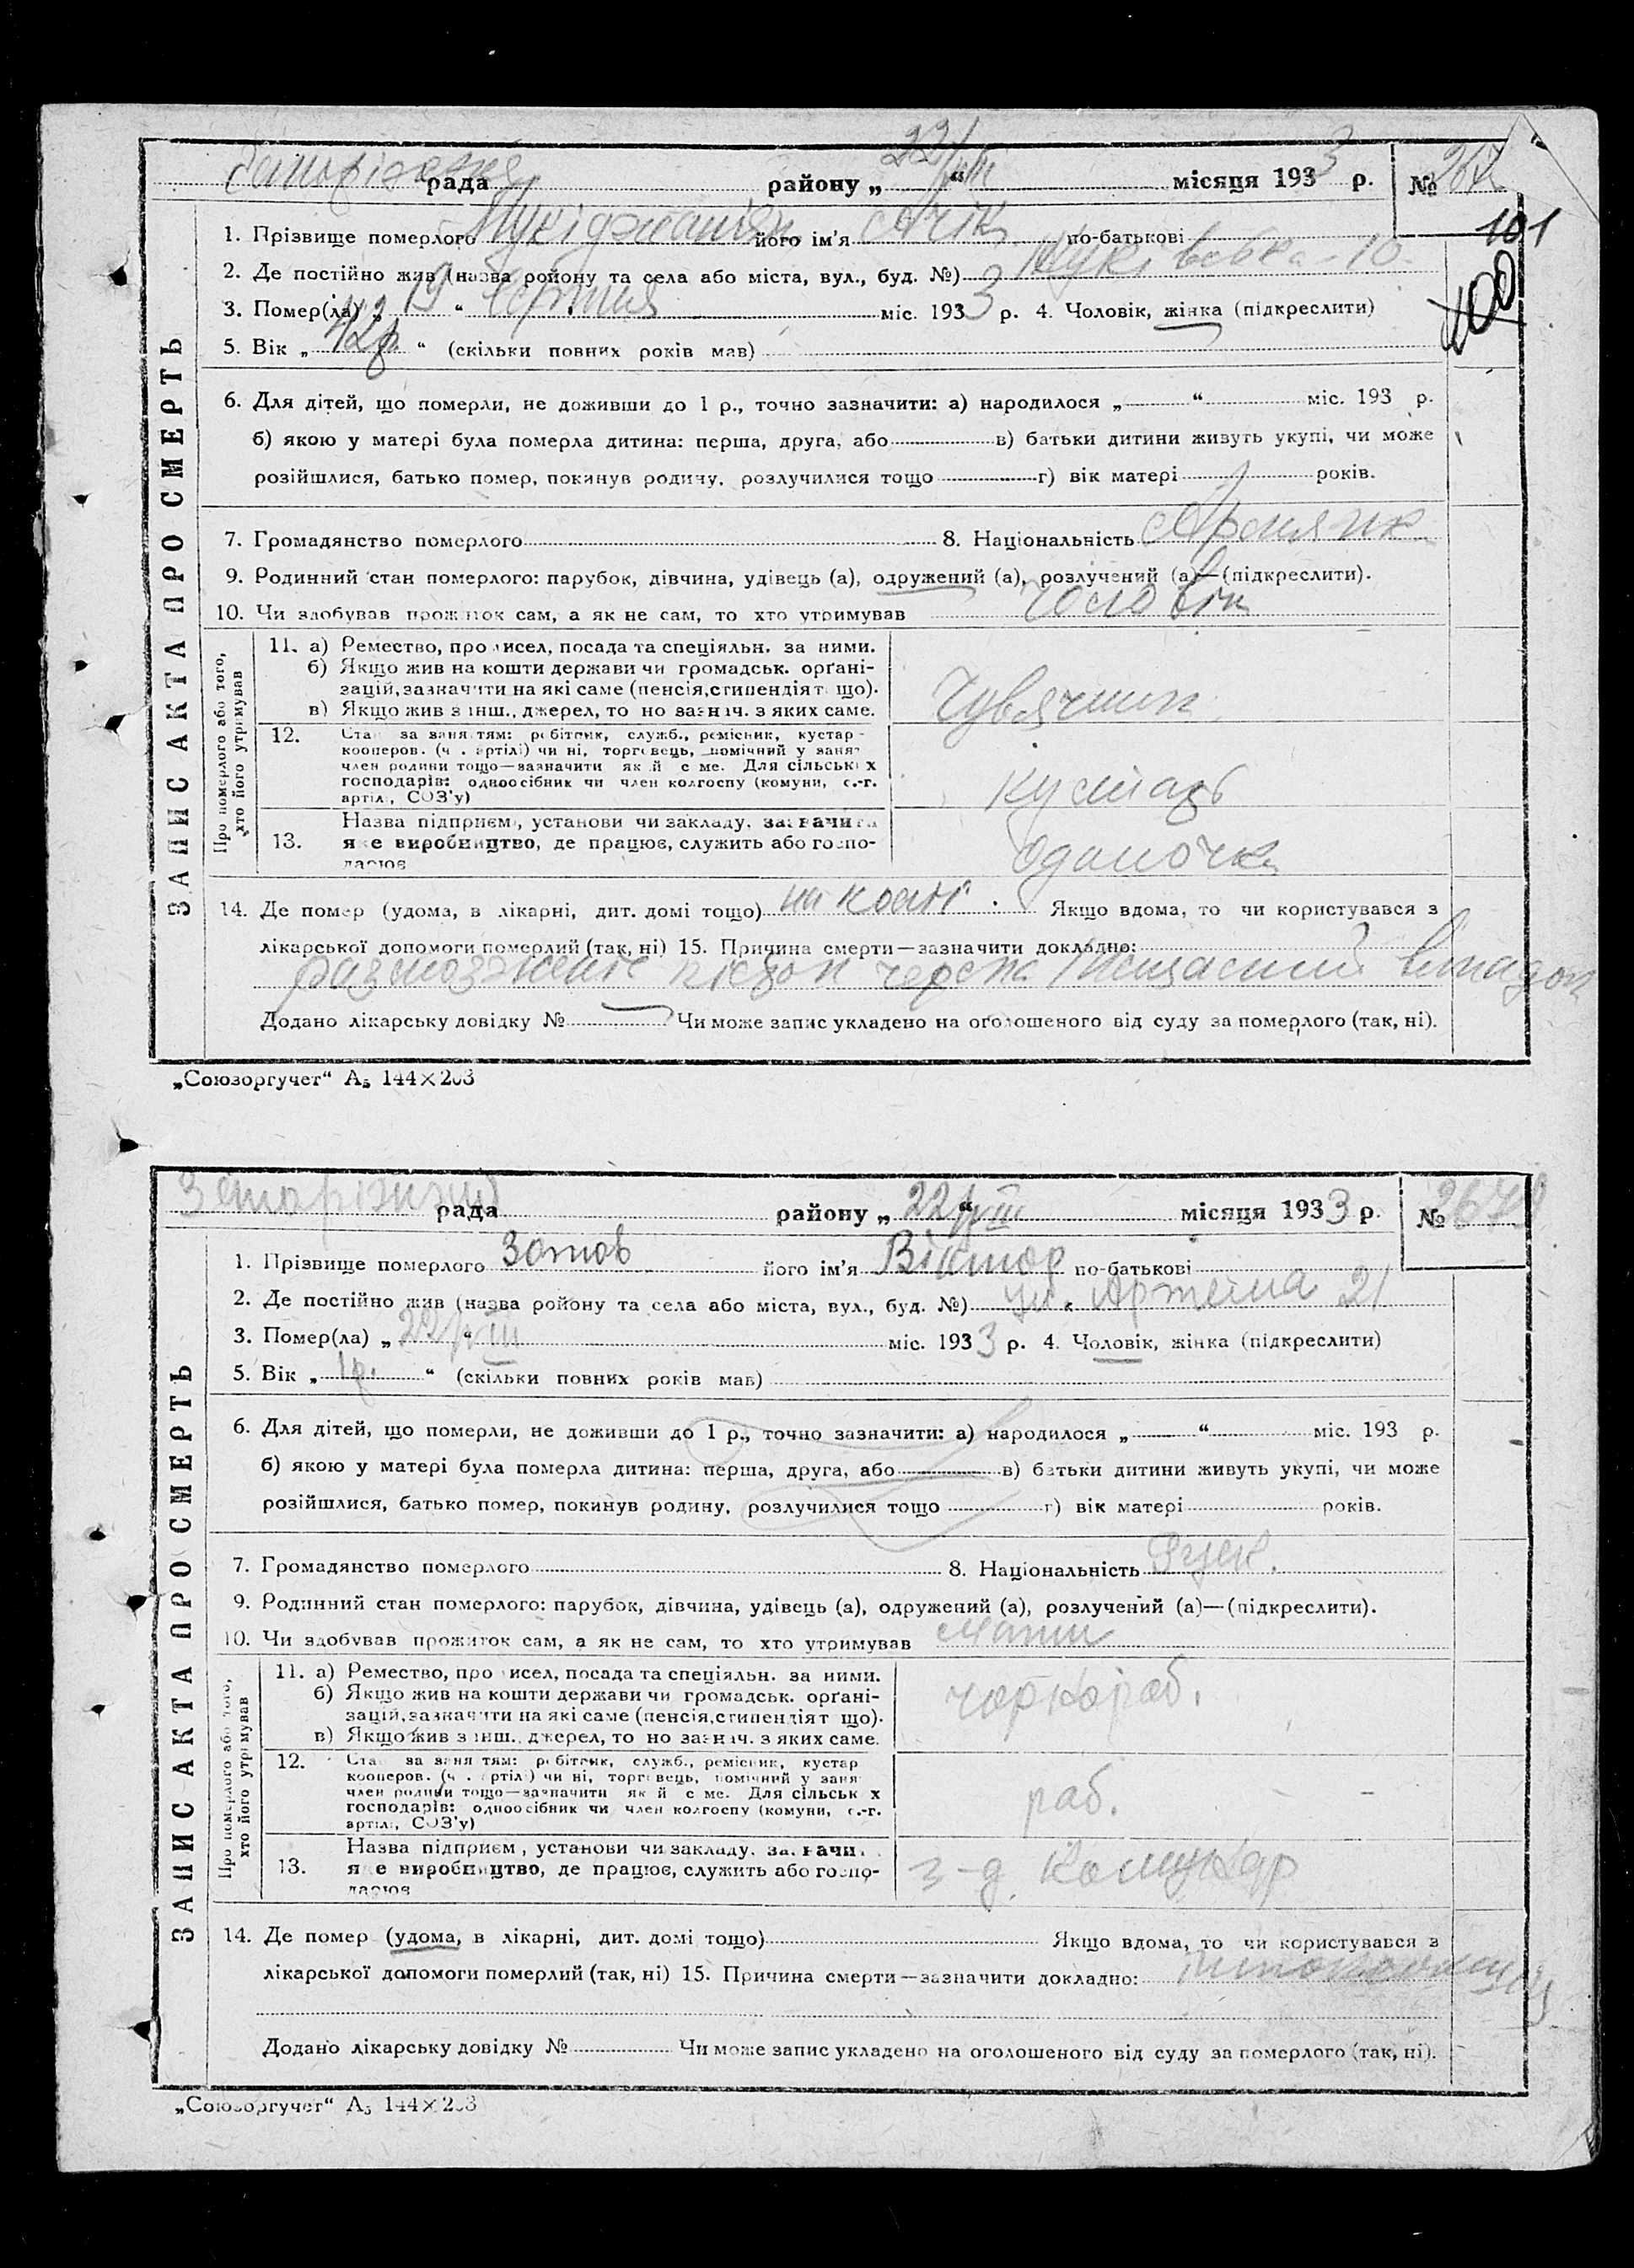 рада району „ 22/VIII “ місяця 1933 р. №
101
100
ЗАПИС АКТА ПРО СМЕРТЬ
1. Прізвище померлого його ім'я по-батькові
2. Де постійно жив (назва району та села або міста, вул., буд. №) 10
3. Помер(ла) „ 19 “ серпня міс. 1933 р. 4. Чоловік, жінка (підкреслити)
5. Вік „ 42 р. “ (скільки повних років мав)
6. Для дітей, що померли, не доживши до 1 р., точно зазначити: а) народилося „ “ міс. 193 р.
б) якою у матері була померла дитина: перша, друга, або в) батьки дитини живуть укупі, чи може
розійшлися, батько помер, покинув родину, розлучилися тощо г) вік матері років.
7. Громадянство померлого 8. Національність
9. Родинний стан померлого: парубок, дівчина, удівець (а), одружений (а), розлучений (а)—(підкреслити).
10. Чи здобував прожиток сам, а як не сам, то хто утримував чоловік
Про померлого або того, хто його утримував
11. а) Ремество, промисел, посада та спеціяльн. за ними.
б) Якщо жив на кошти держави чи громадськ. орґані-
зацій, зазначити на які саме (пенсія, стипендія т що).
в) Якщо жив з інш., джерел, то но зазнач. з яких саме.
Чувячник
12. Стан за заняттям: робітник, служб., ремісник, кустар -
кооперов. (ч . артілі) чи ні, торговець, помічний у занят
член родини тощо—зазначити як й с ме. Для сільськ х
господарів: одноосібник чи член колгоспу (комуни, с.-г.
артілі, СОЗ'у)
кустарь
13. Назва підприєм , установи чи закладу. зазначити
яке виробництво, де працює, служить або госпо-
дарює
Одиночка
14. Де помер (удома, в лікарні, дит. домі тощо) Якщо вдома, то чи користувався з
лікарської допомоги померлий (так, ні) 15. Причина смерти—зазначити докладно:
кісток черепа
Додано лікарську довідку № Чи може запис укладено на оголошеного від суду за померлого (так, ні).
„Союзоргучет“ А₅ 144×203
рада району „ 22/VIII “ місяця 1933 р. №
ЗАПИС АКТА ПРО СМЕРТЬ
1. Прізвище померлого Зотов його ім'я Віктор по-батькові
2. Де постійно жив (назва району та села або міста, вул., буд. №) ул. Артема 21
3. Помер(ла) „ 22/VIII “ міс. 1933 р. 4. Чоловік, жінка (підкреслити)
5. Вік „ 1 р. “ (скільки повних років мав)
6. Для дітей, що померли, не доживши до 1 р., точно зазначити: а) народилося „ “ міс. 193 р.
б) якою у матері була померла дитина: перша, друга, або в) батьки дитини живуть укупі, чи може
розійшлися, батько помер, покинув родину, розлучилися тощо г) вік матері років.
7. Громадянство померлого 8. Національність
9. Родинний стан померлого: парубок, дівчина, удівець (а), одружений (а), розлучений (а)—(підкреслити).
10. Чи здобував прожиток сам, а як не сам, то хто утримував Мати
Про померлого або того, хто його утримував
11. а) Ремество, про исел, посада та спеціяльн. за ними.
б) Якщо жив на кошти держави чи громадськ. орґані-
зацій, зазначити на які саме (пенсія, стипендія т що).
в) Якщо жив з інш., джерел, то но зазнач. з яких саме.
чорнораб.
12. Стан за заняттям: робітник, служб., ремісник, кустар
кооперов. (ч . ртілі) чи ні, торговець, помічний у заня
член родини тощо—зазначити як й с ме. Для сільськ х
господарів: одноосібник чи член колгоспу (комуни, с.-г.
артілі, СОЗ'у)
раб.
13. Назва підприєм , установи чи закладу. зазначи
яке виробництво, де працює, служить або госпо-
дарює
з-д Комунар
14. Де помер (удома, в лікарні, дит. домі тощо) Якщо вдома, то чи користувався з
лікарської допомоги померлий (так, ні) 15. Причина смерти—зазначити докладно:
Додано лікарську довідку № Чи може запис укладено на оголошеного від суду за померлого (так, ні).
„Союзоргучет“ А₅ 144×203